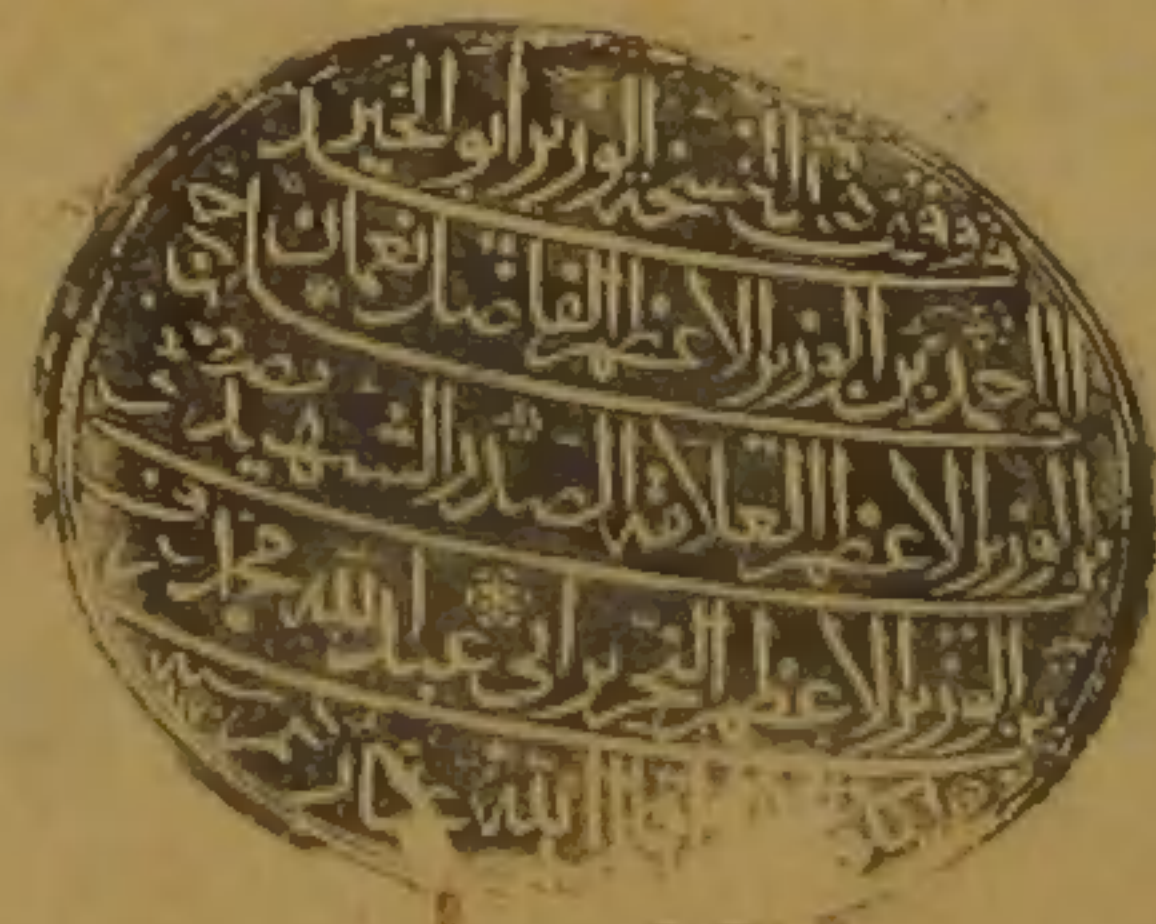 قد وقف هذه النسخة الوزير ابو الخير
الحاج احمد بن الوزير الاعظم الفاضل نعمان
بن الوزير الاعظم العلامة الصدر الشهيد مصطفى
بن الوزير الاعظم النحرير ابي عبد الله محمد عرف
الله عثارهم